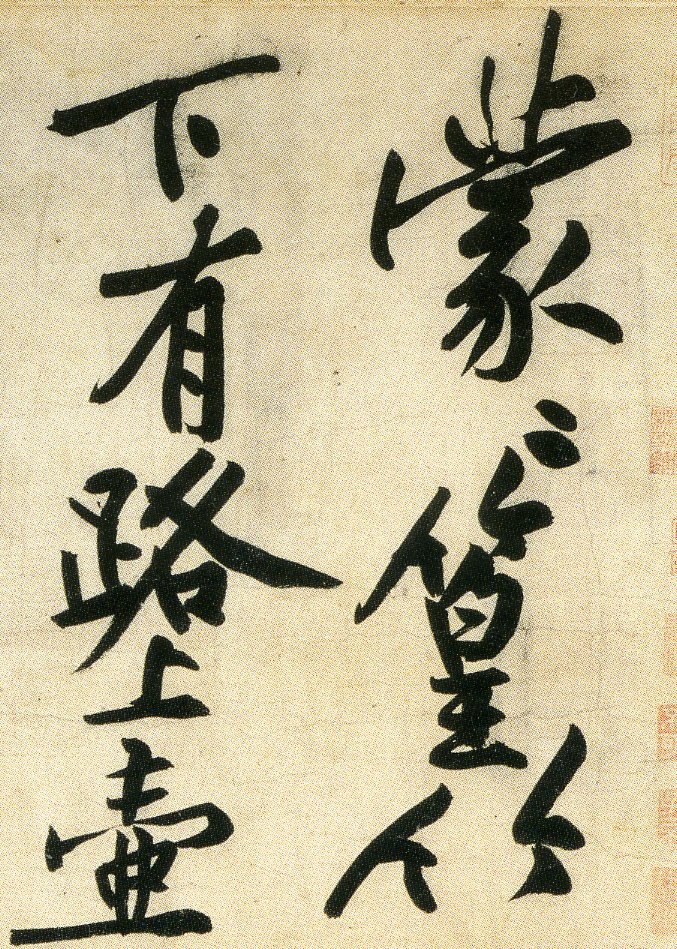 蒙〻篁竹
下有路上壺